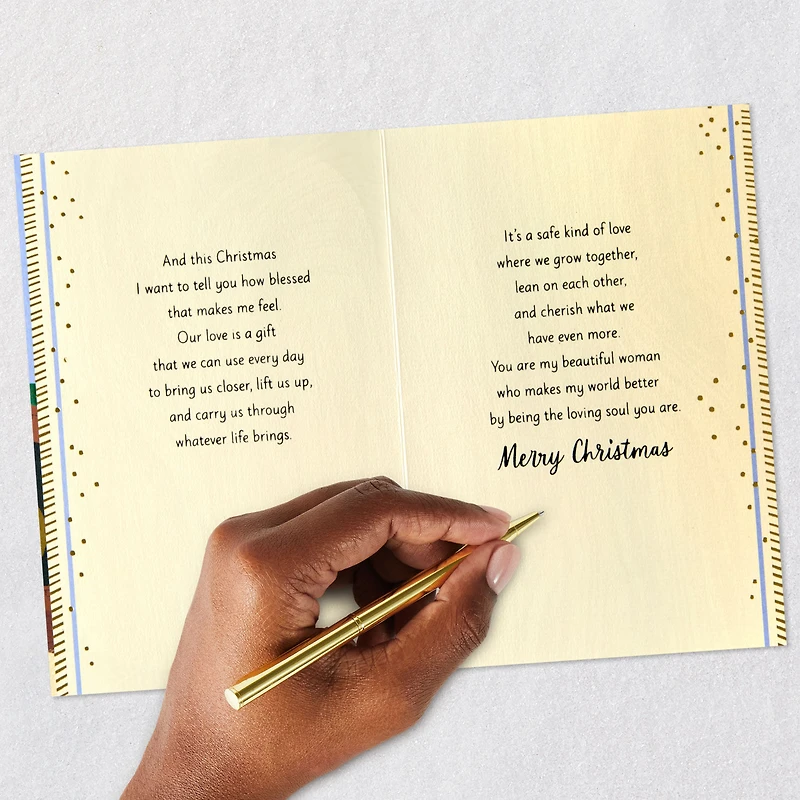 And this Christmas
I want to tell you how blessed
that makes me feel.
Our love is a gift
that we can use every day
to bring us closer, lift us up,
and carry us through
whatever life brings.
It's a safe kind of love
where we grow together,
lean on each other,
and cherish what we
have even more.
You are my beautiful woman
who makes my world better
by being the loving soul you are.
Merry Christmas